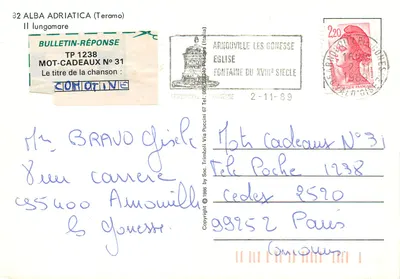 82 ALBA ADRIATICA (Teramo)
Il lungomare
BULLETIN-RÉPONSE
TP 1238
MOT-CADEAUX N° 31
Le titre de la chanson :
COMOTINE
ARNOUVILLE LES GONESSE
EGLISE
FONTAINE DU XVIIIe SIECLE
2-11-89
2,20
Copyright © 1986 by Soc. Trimboli Via Puccini
Mme BRAVO Gisèle
8 rue carrere
95400 Arnouville
les Gonesse
Mots cadeaux N° 31
Tele Poche 1238
cedex 2520
99252 Paris
concours